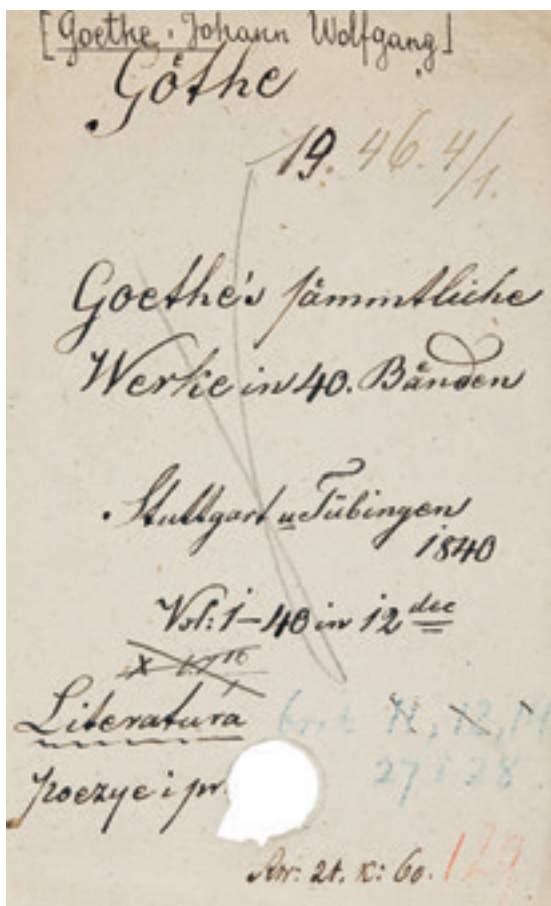 [Goethe, Johann Wolfgang]
Göthe
19. 46. 4/1.
Goethe's sämmtliche
Werke in 40. Bänden
Stuttgart u Tübingen
1840
Vol: 1–40 in 12
Literatura
brak 11, 12, 14
27 i 28
Poezye i pr
Aw: 2t. K: 60. 129